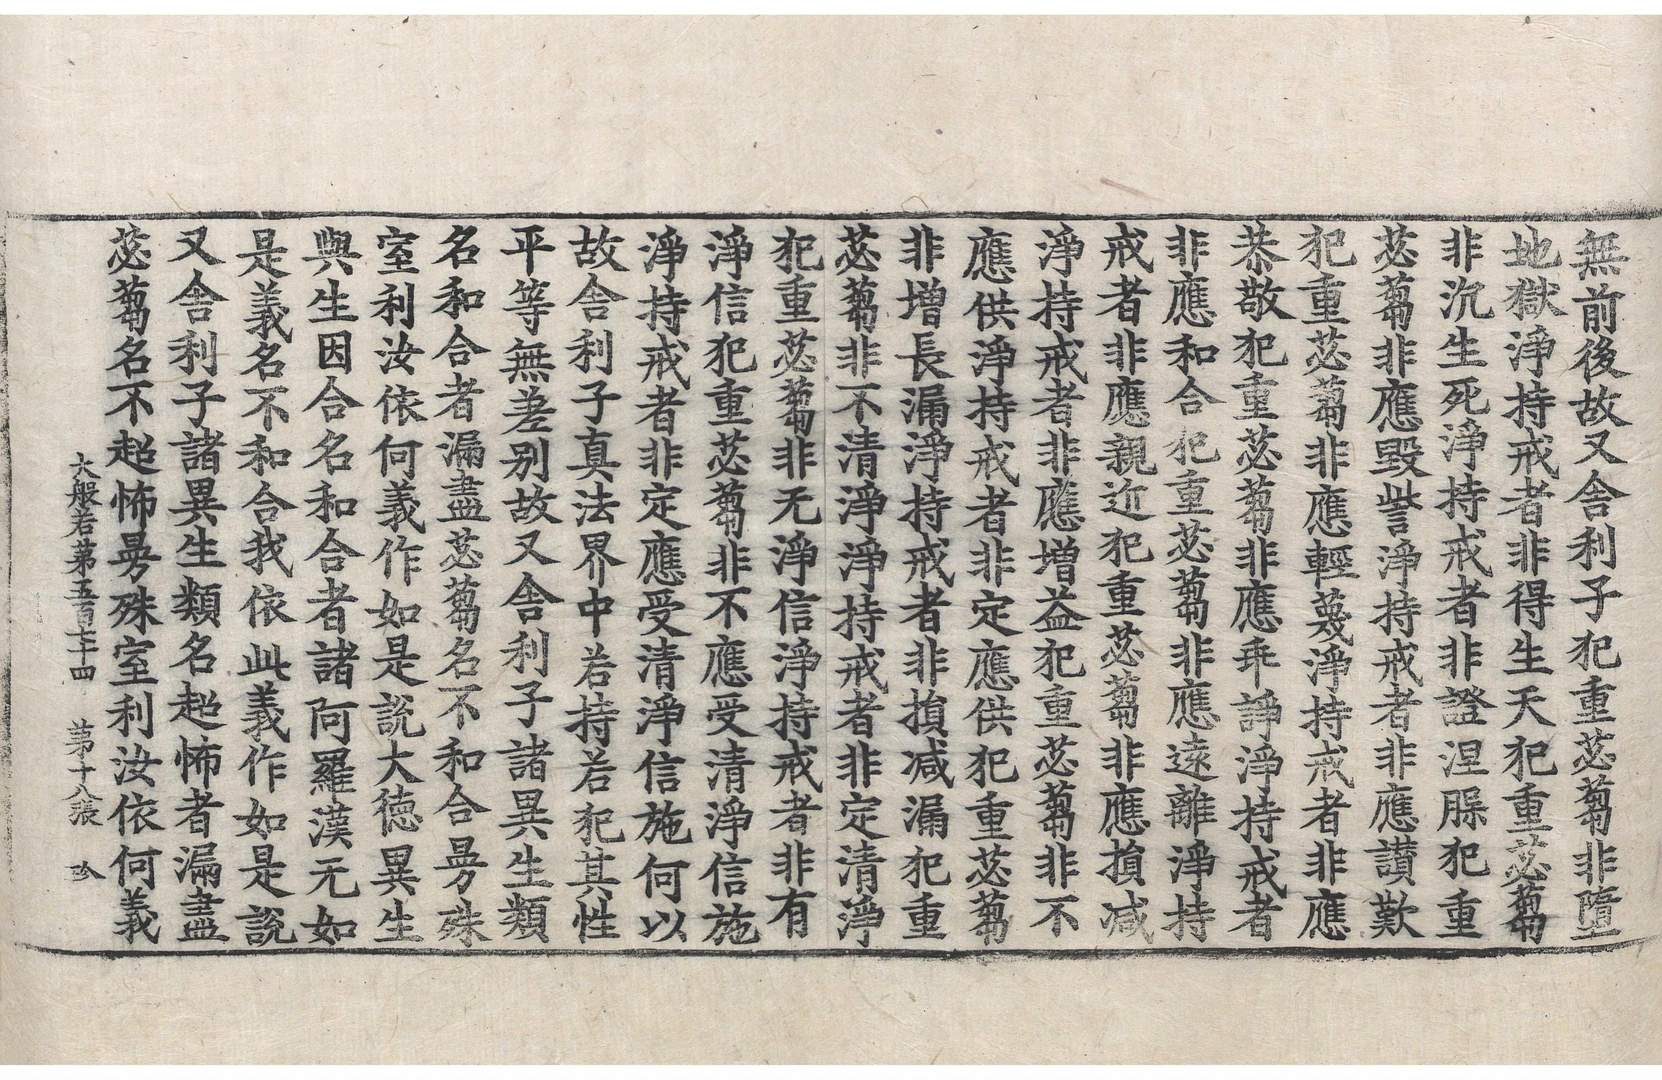 無前後故又舍利子犯重苾蒭非墮
地獄淨持戒者非得生天犯重苾蒭
非沉生死淨持戒者非證涅脲犯重
苾蒭非應毀呰淨持戒者非應讃歎
犯重苾蒭非應輕蔑淨持戒者非應
恭敬犯重苾蒭非應乖諍淨持戒者
非應和合犯重苾蒭非應遠離淨持
戒者非應親近犯重苾蒭非應損減
淨持戒者非應增益犯重苾蒭非不
應供淨持戒者非定應供犯重苾蒭
非增長漏淨持戒者非損减漏犯重
苾蒭非不清淨淨持戒者非定清淨
犯重苾蒭非无淨信淨持戒者非有
淨信犯重苾蒭非不應受清淨信施
淨持戒者非定應受清淨信施何以
故舍利子真法界中若持若犯其性
平等無差别故又舍利子諸異生類
名和合者漏盡苾蒭名不和合曼殊
室利汝依何義作如是説大德異生
與生因合名和合者諸阿羅漢无如
是義名不和合我依此義作如是説
又舍利子諸異生類名超怖者漏盡
苾蒭名不超怖曼殊室利汝依何義
大般若第五百七十四 第十八張 珍